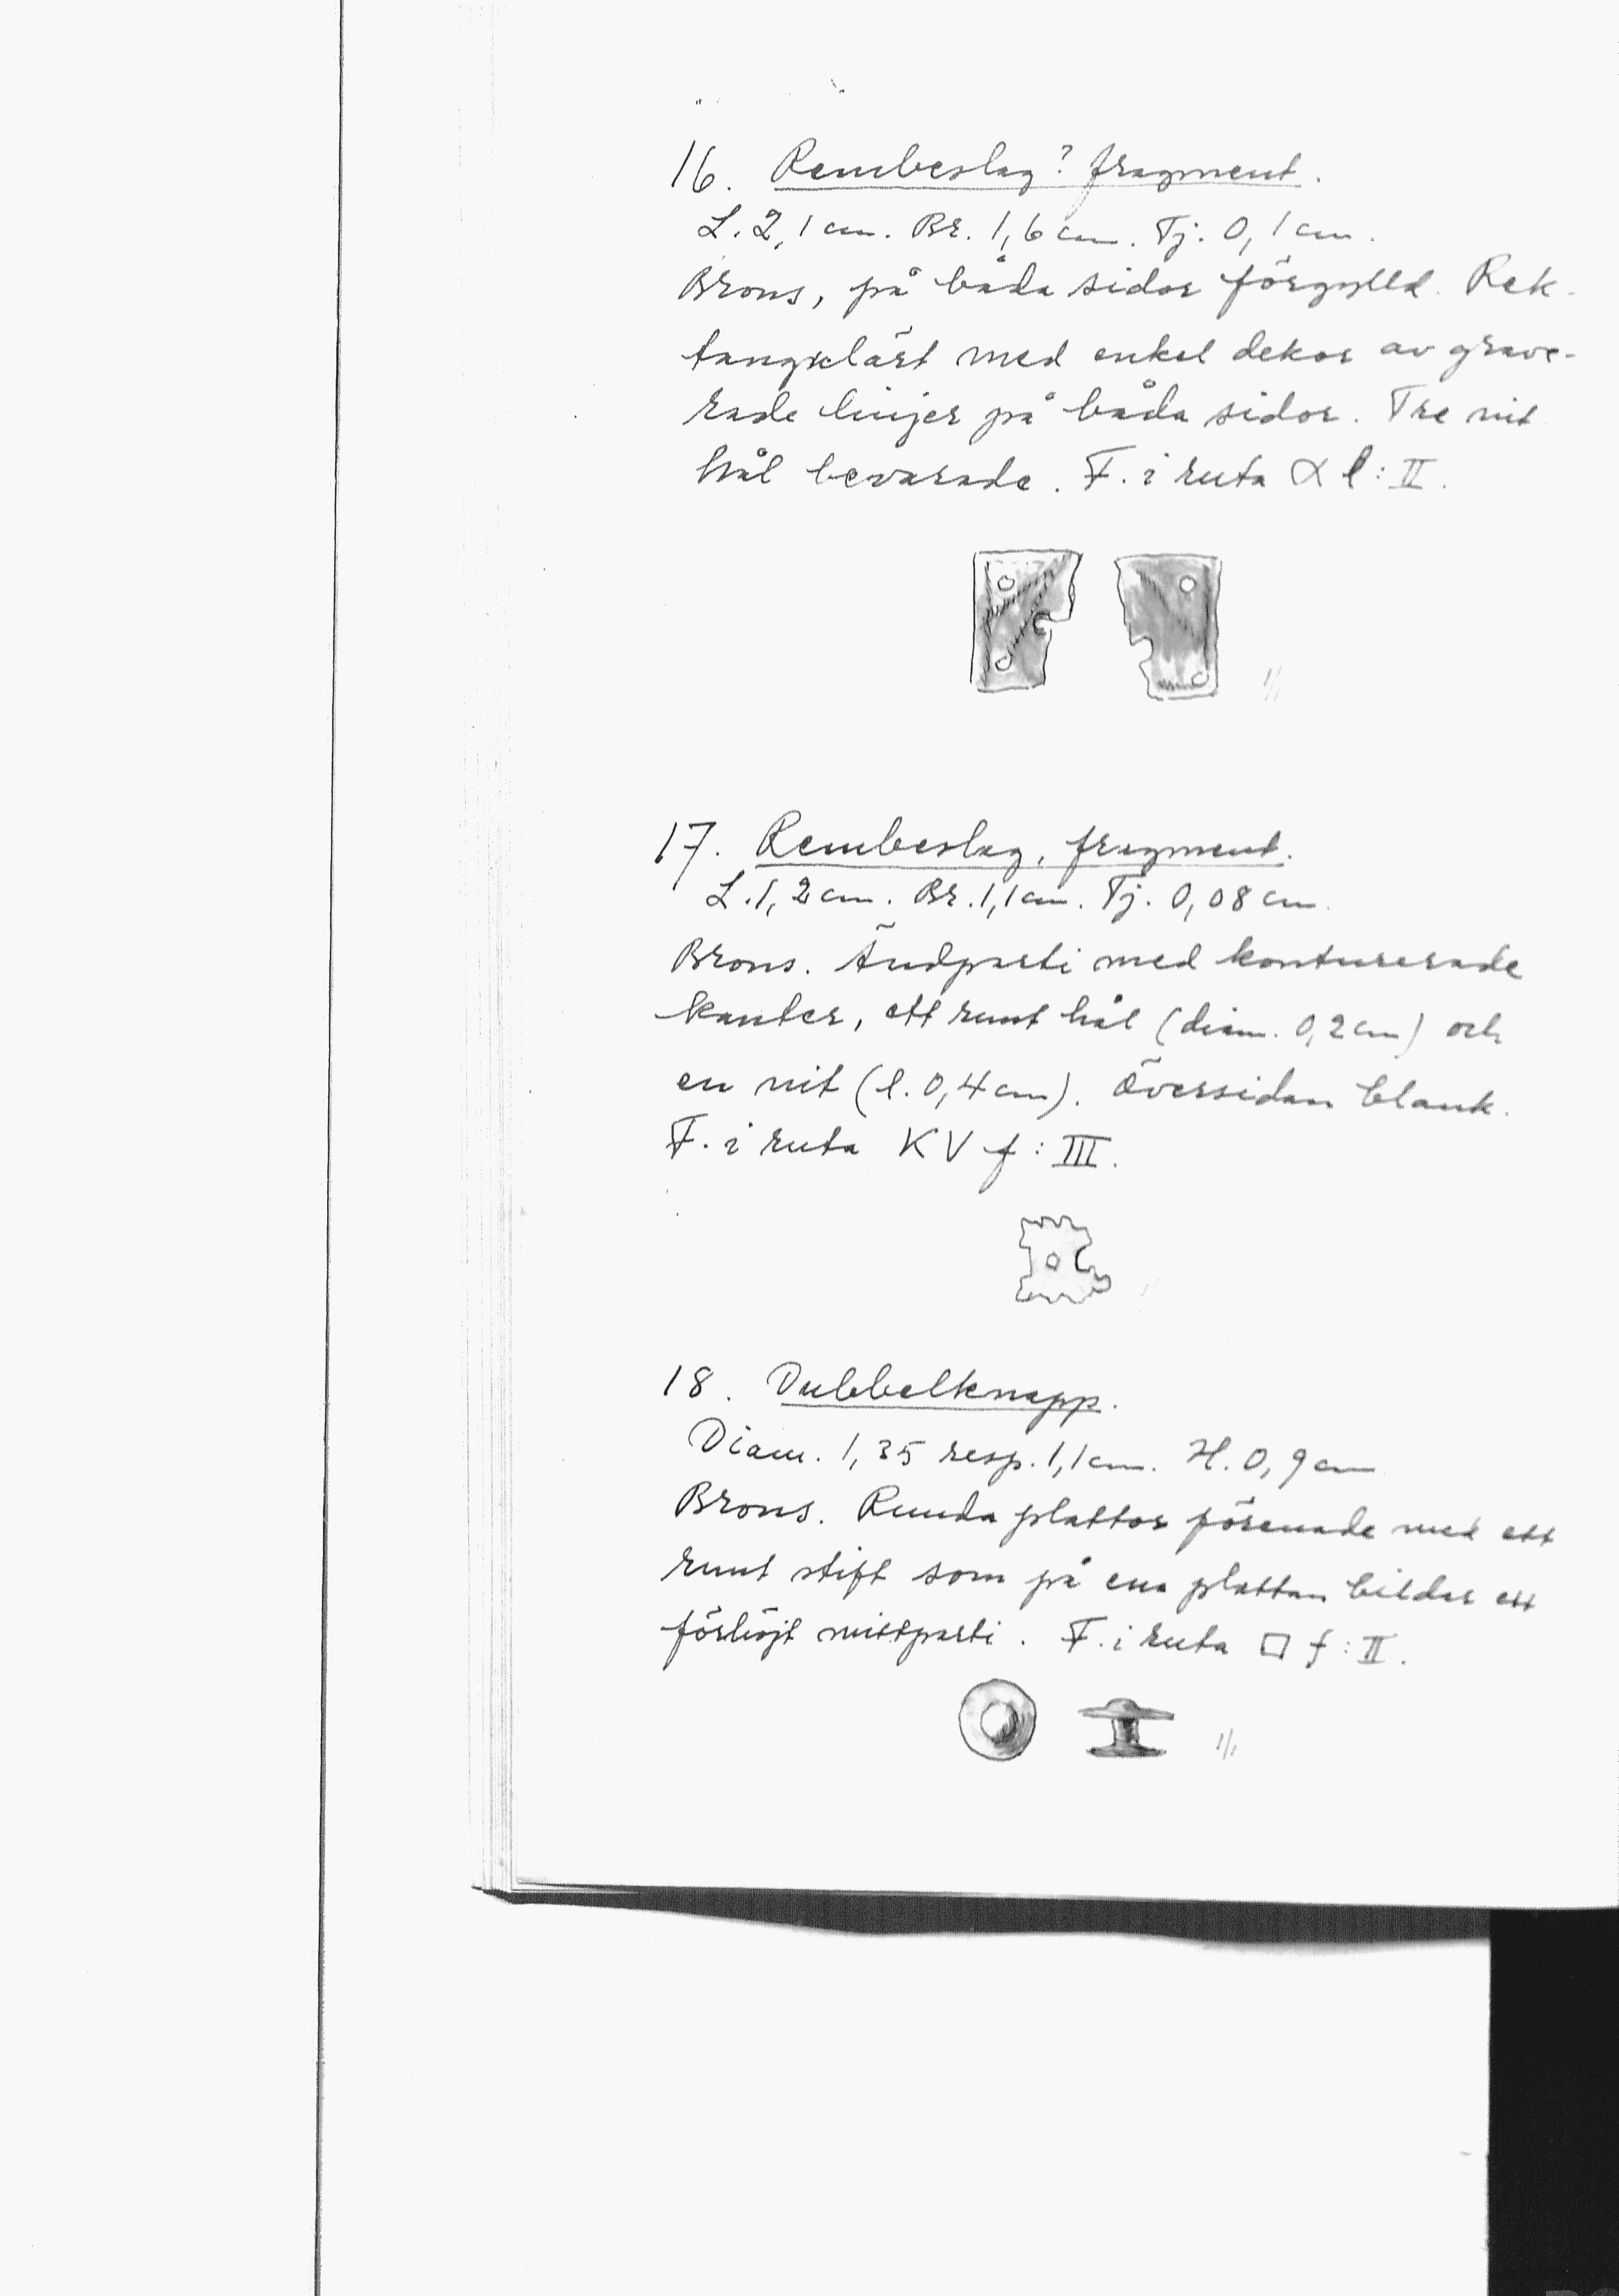 16. Rembeslag? fragment.
L. 2,1 cm. Br. 1,6 cm. Tj. 0,1 cm.
Brons, på båda sidor förgylld. Rek-
tangulärt med enkel dekor av grave-
rade linjer på båda sidor. Tre nit
hål bevarade. F. i ruta α l : II.
1/1
17. Rembeslag, fragment.
L. 1,2 cm. Br. 1,1 cm. Tj. 0,08 cm.
Brons. Ändparti med konturerade
kanter, ett runt hål (diam. 0,2 cm) och
en nit (l. 0,4 cm). Översidan blank.
F. i ruta KV f : III.
18. Dubbelknapp.
Diam. 1,35 resp. 1,1 cm. H. 0,9 cm
Brons. Runda plattor förenade med ett
runt stift som på ena plattan bildar ett
förhöjt mittparti. F. i ruta □ f : II.
1/1